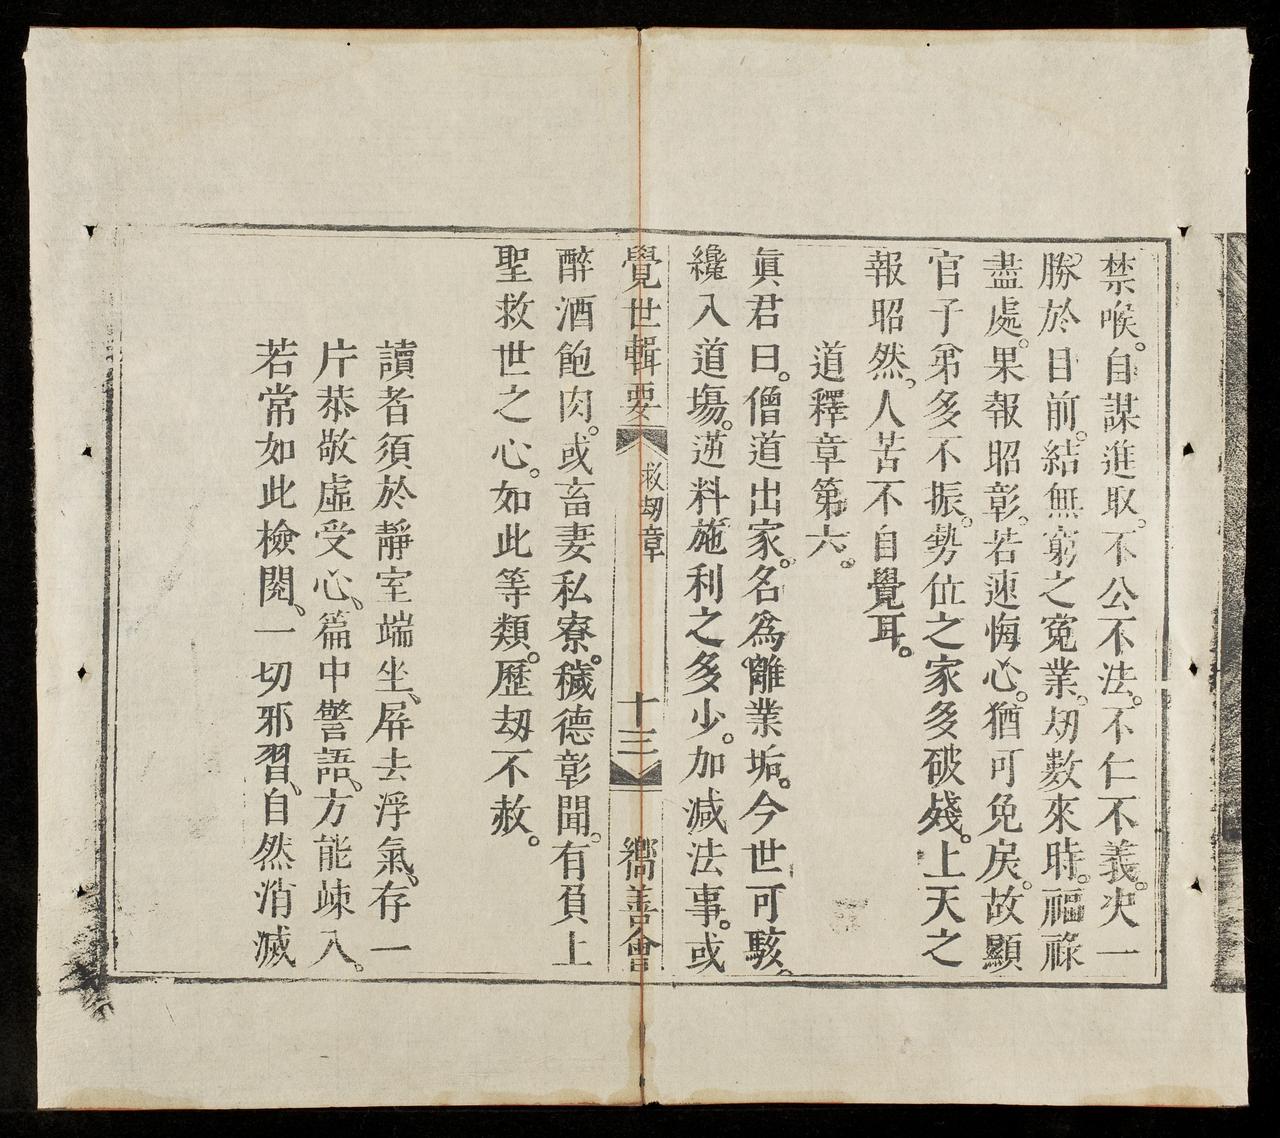 禁喉。自謀進取。不公不法。不仁不義。次一
勝於目前。結無窮之寃業。刼數來時。福祿
盡處。果報昭彰。若速悔心。猶可免戾。故顯
官子弟多不振。勢位之家多破殘。上天之
報昭然。人苦不自覺耳。
道釋章第六。
眞君曰。僧道出家。名爲離業垢。今世可駭。
纔入道塲。遂料施利之多少。加減法事。或
覺世輯要 救刼章 十三 嚮善會
醉酒飽肉。或畜妻私寮。穢德彰聞。有負上
聖救世之心。如此等類。歷刼不赦。
讀者須於靜室端坐、屏去浮氣、存一
片恭敬虛受心、篇中警語、方能疎入。
若常如此檢閱、一切邪習、自然消滅